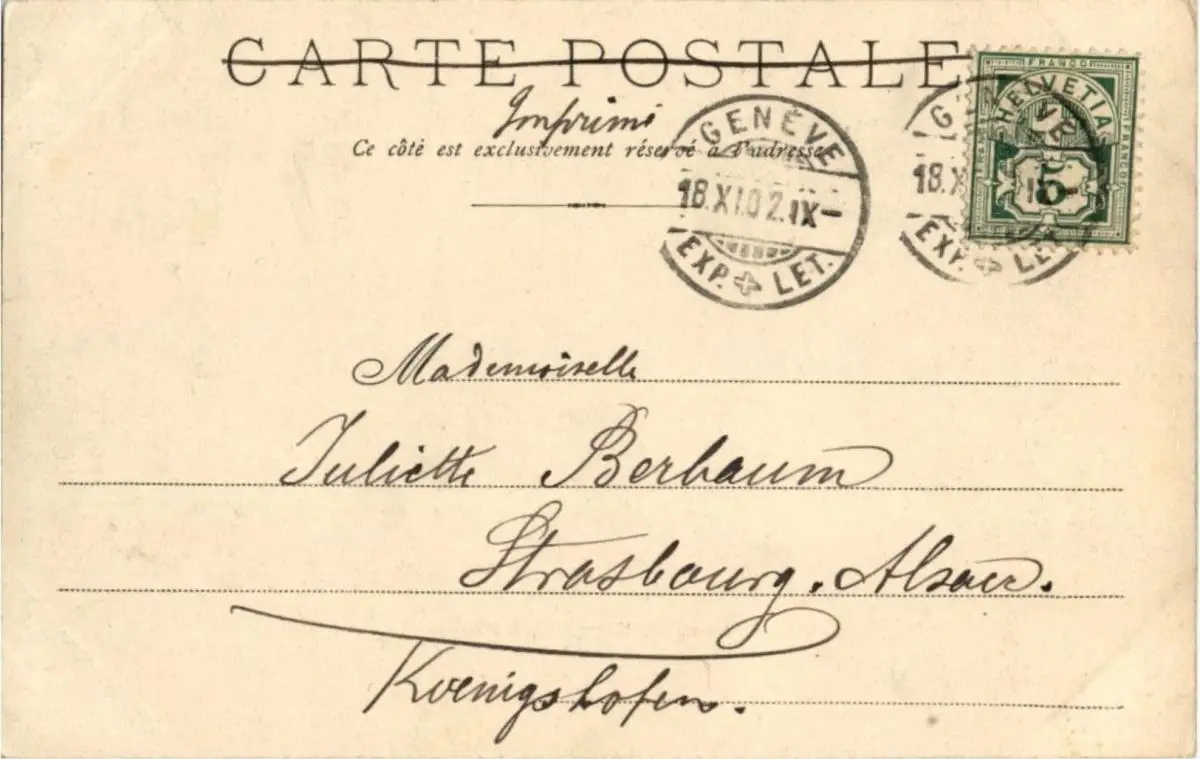 CARTE POSTALE
Imprimé
Ce côté est exclusivement réservé à l'adresse
GENÈVE
18.XI.02.IX-
EXP. LET.
18.X
EXP. LET.
FRANCO
HELVETIA
5
Mademoiselle
Juliette Berbaum
Strasbourg. Alsace.
Koenigshofen.